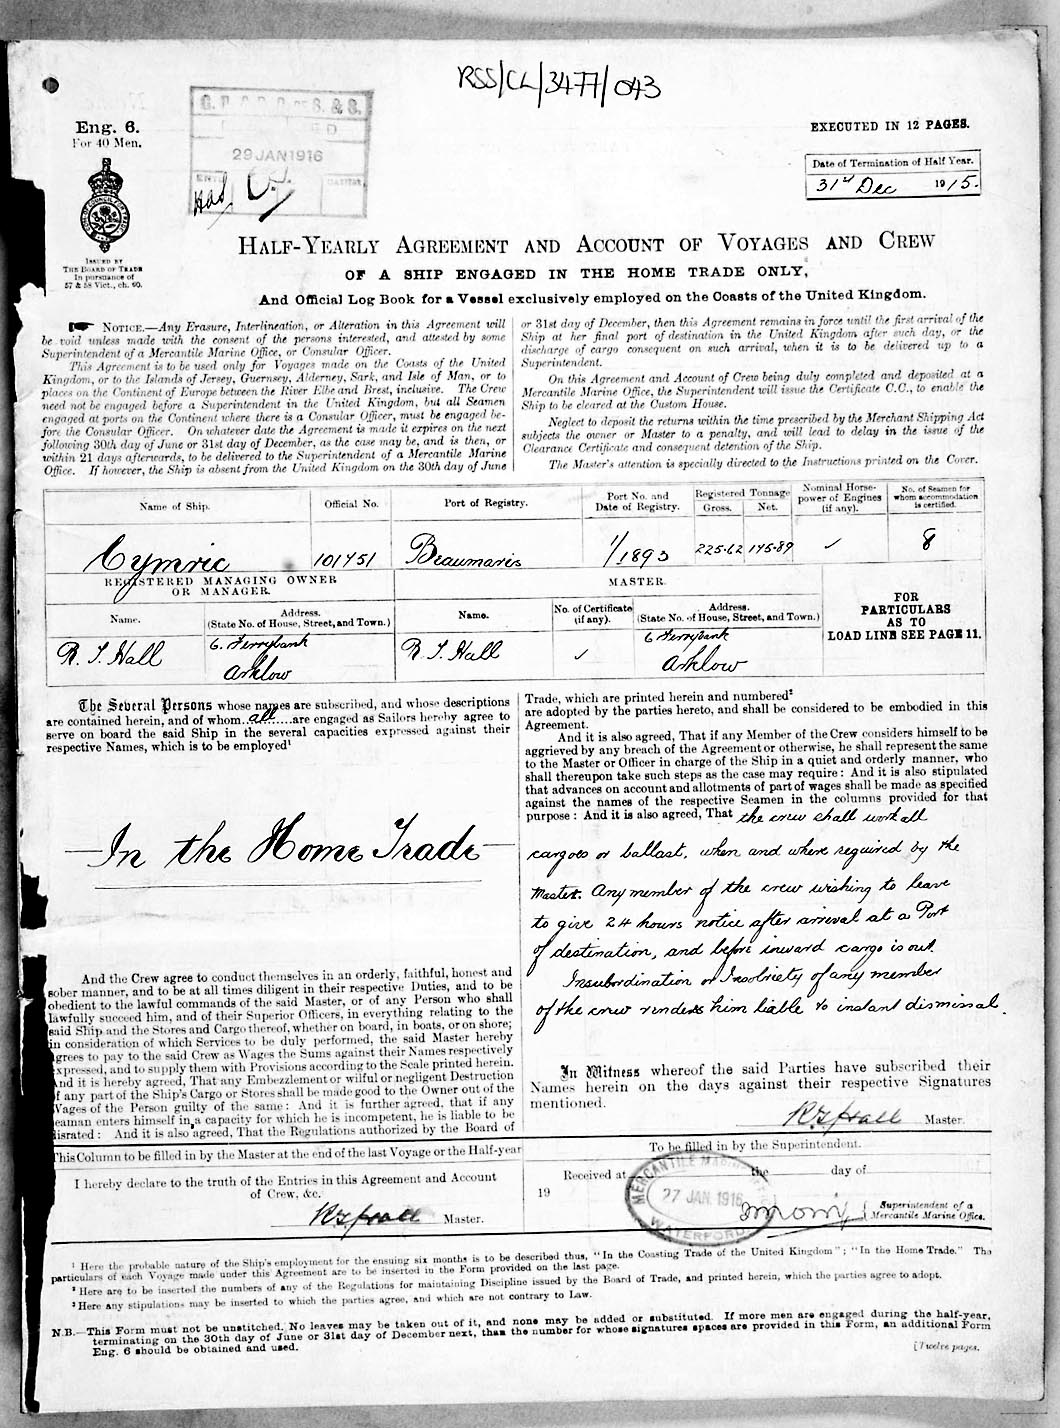 RSS/CL/3477/043
Eng. 6.
For 40 Men.
ISSUED BY
THE BOARD OF TRADE
In pursuance of
57 & 58 Vict., ch. 60.
29 JAN 1916
EXECUTED IN 12 PAGES.
Date of Termination of Half Year.
31st Dec 1915.
HALF-YEARLY AGREEMENT AND ACCOUNT OF VOYAGES AND CREW
OF A SHIP ENGAGED IN THE HOME TRADE ONLY,
And Official Log Book for a Vessel exclusively employed on the Coasts of the United Kingdom.
NOTICE.—Any Erasure, Interlineation, or Alteration in this Agreement will
be void unless made with the consent of the persons interested, and attested by some
Superintendent of a Mercantile Marine Office, or Consular Officer.
This Agreement is to be used only for Voyages made on the Coasts of the United
Kingdom, or to the Islands of Jersey, Guernsey, Alderney, Sark, and Isle of Man, or to
places on the Continent of Europe between the River Elbe and Brest, inclusive. The Crew
need not be engaged before a Superintendent in the United Kingdom, but all Seamen
engaged at ports on the Continent where there is a Consular Officer, must be engaged be-
fore the Consular Officer. On whatever date the Agreement is made it expires on the next
following 30th day of June or 31st day of December, as the case may be, and is then, or
within 21 days afterwards, to be delivered to the Superintendent of a Mercantile Marine
Office. If however, the Ship is absent from the United Kingdom on the 30th day of June
or 31st day of December, then this Agreement remains in force until the first arrival of the
Ship at her final port of destination in the United Kingdom after such day, or the
discharge of cargo consequent on such arrival, when it is to be delivered up to a
Superintendent.
On this Agreement and Account of Crew being duly completed and deposited at a
Mercantile Marine Office, the Superintendent will issue the Certificate C.C., to enable the
Ship to be cleared at the Custom House.
Neglect to deposit the returns within the time prescribed by the Merchant Shipping Act
subjects the owner or Master to a penalty, and will lead to delay in the issue of the
Clearance Certificate and consequent detention of the Ship.
The Master's attention is specially directed to the Instructions printed on the Cover.
Name of Ship. Official No. Port of Registry. Port No. and Date of Registry. Registered Tonnage Gross. Net. Nominal Horse-power of Engines (if any). No. of Seamen for whom accommodation is certified.
Cymric 101751 Beaumaris 1/1893 225.62 145.89 ✓ 8
REGISTERED MANAGING OWNER
OR MANAGER.
MASTER.
FOR
PARTICULARS
AS TO
LOAD LINE SEE PAGE 11.
Name. Address. (State No. of House, Street, and Town.) Name. No. of Certificate (if any). Address. (State No. of House, Street, and Town.)
R. J. Hall 6. Ferrybank Arklow R. J. Hall ✓ 6 Ferrybank Arklow
The Several Persons whose names are subscribed, and whose descriptions
are contained herein, and of whom all are engaged as Sailors hereby agree to
serve on board the said Ship in the several capacities expressed against their
respective Names, which is to be employed¹
— In the Home Trade —
And the Crew agree to conduct themselves in an orderly, faithful, honest and
sober manner, and to be at all times diligent in their respective Duties, and to be
obedient to the lawful commands of the said Master, or of any Person who shall
lawfully succeed him, and of their Superior Officers, in everything relating to the
said Ship and the Stores and Cargo thereof, whether on board, in boats, or on shore;
in consideration of which Services to be duly performed, the said Master hereby
grees to pay to the said Crew as Wages the Sums against their Names respectively
xpressed, and to supply them with Provisions according to the Scale printed herein.
nd it is hereby agreed, That any Embezzlement or wilful or negligent Destruction
f any part of the Ship's Cargo or Stores shall be made good to the Owner out of the
Wages of the Person guilty of the same: And it is further agreed, that if any
eaman enters himself in a capacity for which he is incompetent, he is liable to be
disrated: And it is also agreed, That the Regulations authorized by the Board of
Trade, which are printed herein and numbered²
are adopted by the parties hereto, and shall be considered to be embodied in this
Agreement.
And it is also agreed, That if any Member of the Crew considers himself to be
aggrieved by any breach of the Agreement or otherwise, he shall represent the same
to the Master or Officer in charge of the Ship in a quiet and orderly manner, who
shall thereupon take such steps as the case may require: And it is also stipulated
that advances on account and allotments of part of wages shall be made as specified
against the names of the respective Seamen in the columns provided for that
purpose: And it is also agreed, That the crew shall work all
cargoes or ballast, when and where required by the
Master. Any member of the crew wishing to leave
to give 24 hours notice after arrival at a Port
of destination, and before inward cargo is out.
Insubordination or Insobriety of any member
of the crew renders him liable to instant dismissal.
In Witness whereof the said Parties have subscribed their
Names herein on the days against their respective Signatures
mentioned.
R J Hall Master.
This Column to be filled in by the Master at the end of the last Voyage or the Half-year
I hereby declare to the truth of the Entries in this Agreement and Account
of Crew, &c.
R J Hall Master.
To be filled in by the Superintendent.
Received at the day of
19
MERCANTILE MARINE
27 JAN. 1916
WATERFORD
Superintendent of a
Mercantile Marine Office.
¹ Here the probable nature of the Ship's employment for the ensuing six months is to be described thus, "In the Coasting Trade of the United Kingdom"; "In the Home Trade." The
particulars of each Voyage made under this Agreement are to be inserted in the Form provided on the last page.
² Here are to be inserted the numbers of any of the Regulations for maintaining Discipline issued by the Board of Trade, and printed herein, which the parties agree to adopt.
³ Here any stipulations may be inserted to which the parties agree, and which are not contrary to Law.
N.B.—This Form must not be unstitched. No leaves may be taken out of it, and none may be added or substituted. If more men are engaged during the half-year,
terminating on the 30th day of June or 31st day of December next, than the number for whose signatures spaces are provided in this Form, an additional Form
Eng. 6 should be obtained and used.
[Twelve pages.